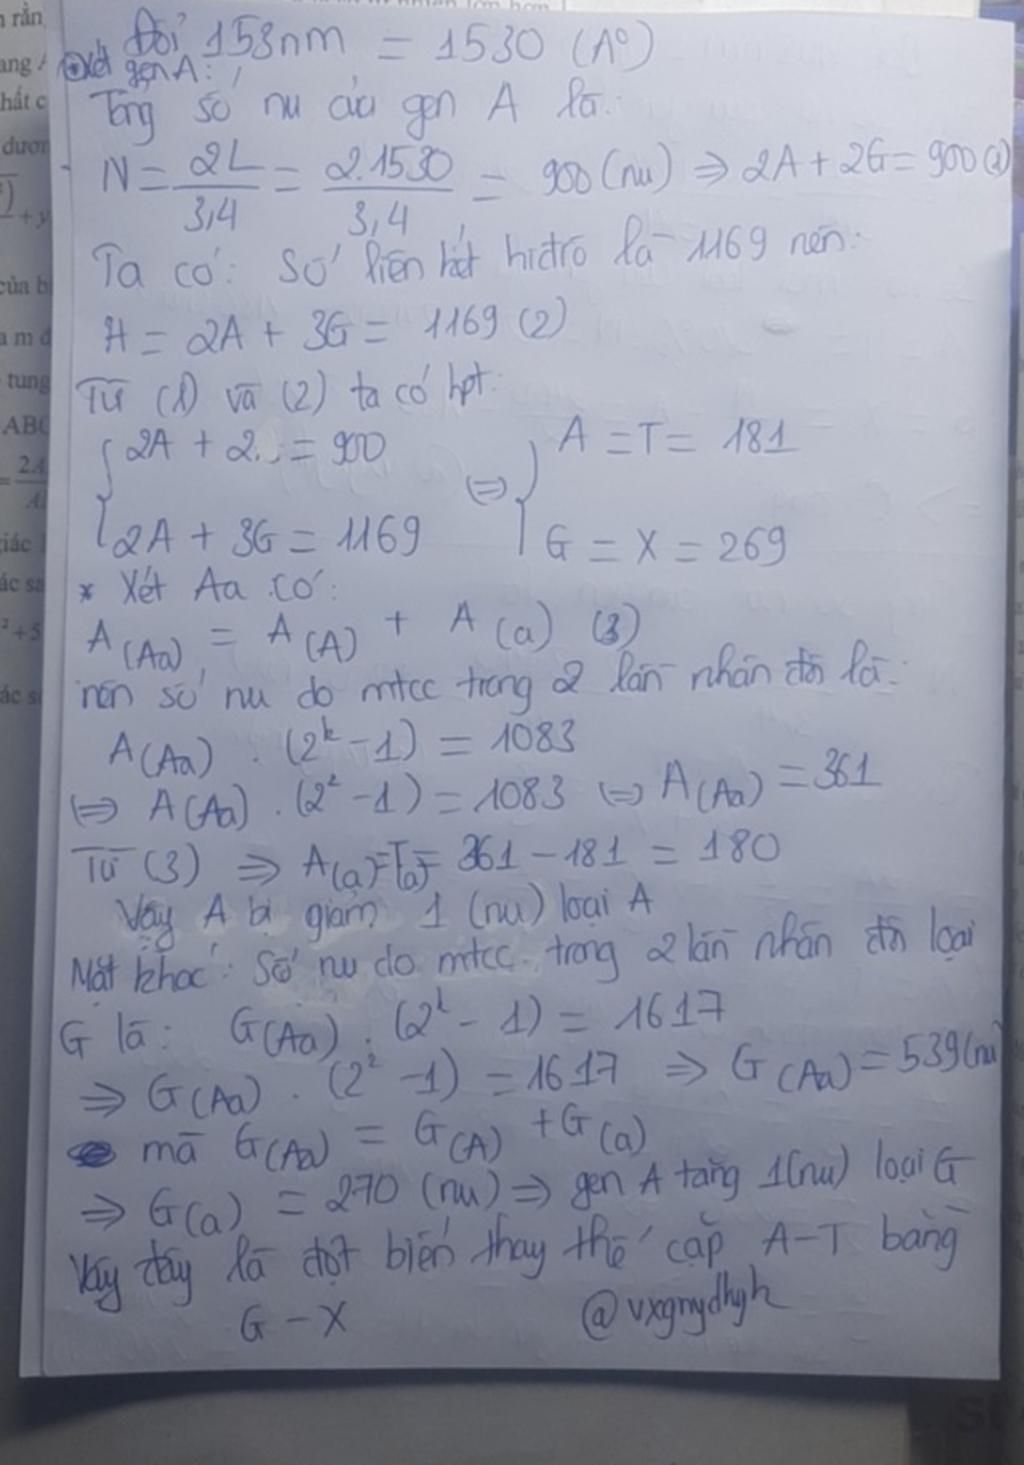 Đổi 153nm = 1530 (A°)
Xét gen A:
Tổng số nu của gen A là:
N = 2L/3,4 = 2.1530/3,4 = 900 (nu) => 2A + 2G = 900 (1)
Ta có: Số liên kết hiđrô là 1169 nên:
H = 2A + 3G = 1169 (2)
Từ (1) và (2) ta có hpt:
{ 2A + 2 = 900 <=> { A = T = 181
{ 2A + 3G = 1169 { G = X = 269
* Xét Aa có:
A(Aa) = A(A) + A(a) (3)
nên số nu do mtcc trong 2 lần nhân đôi là:
A(Aa) . (2^k - 1) = 1083
<=> A(Aa) . (2² - 1) = 1083 <=> A(Aa) = 361
Từ (3) => A(a) = T(a) = 361 - 181 = 180
Vậy A bị giảm 1 (nu) loại A
Mặt khác: Số nu do mtcc trong 2 lần nhân đôi loại
G là: G(Aa) . (2^k - 1) = 1617
=> G(Aa) . (2² - 1) = 1617 => G(Aa) = 539 (nu)
mà G(Aa) = G(A) + G(a)
=> G(a) = 270 (nu) => gen A tăng 1 (nu) loại G
Vậy đây là đột biến thay thế cặp A-T bằng
G - X @vxgnydhgh